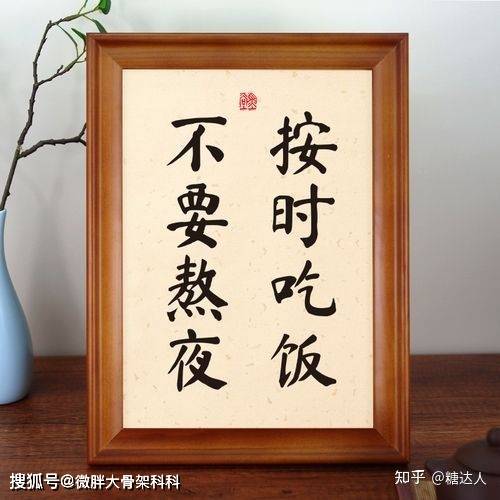 按时吃饭
不要熬夜
搜狐号@微胖大骨架科科
知乎 @糖达人